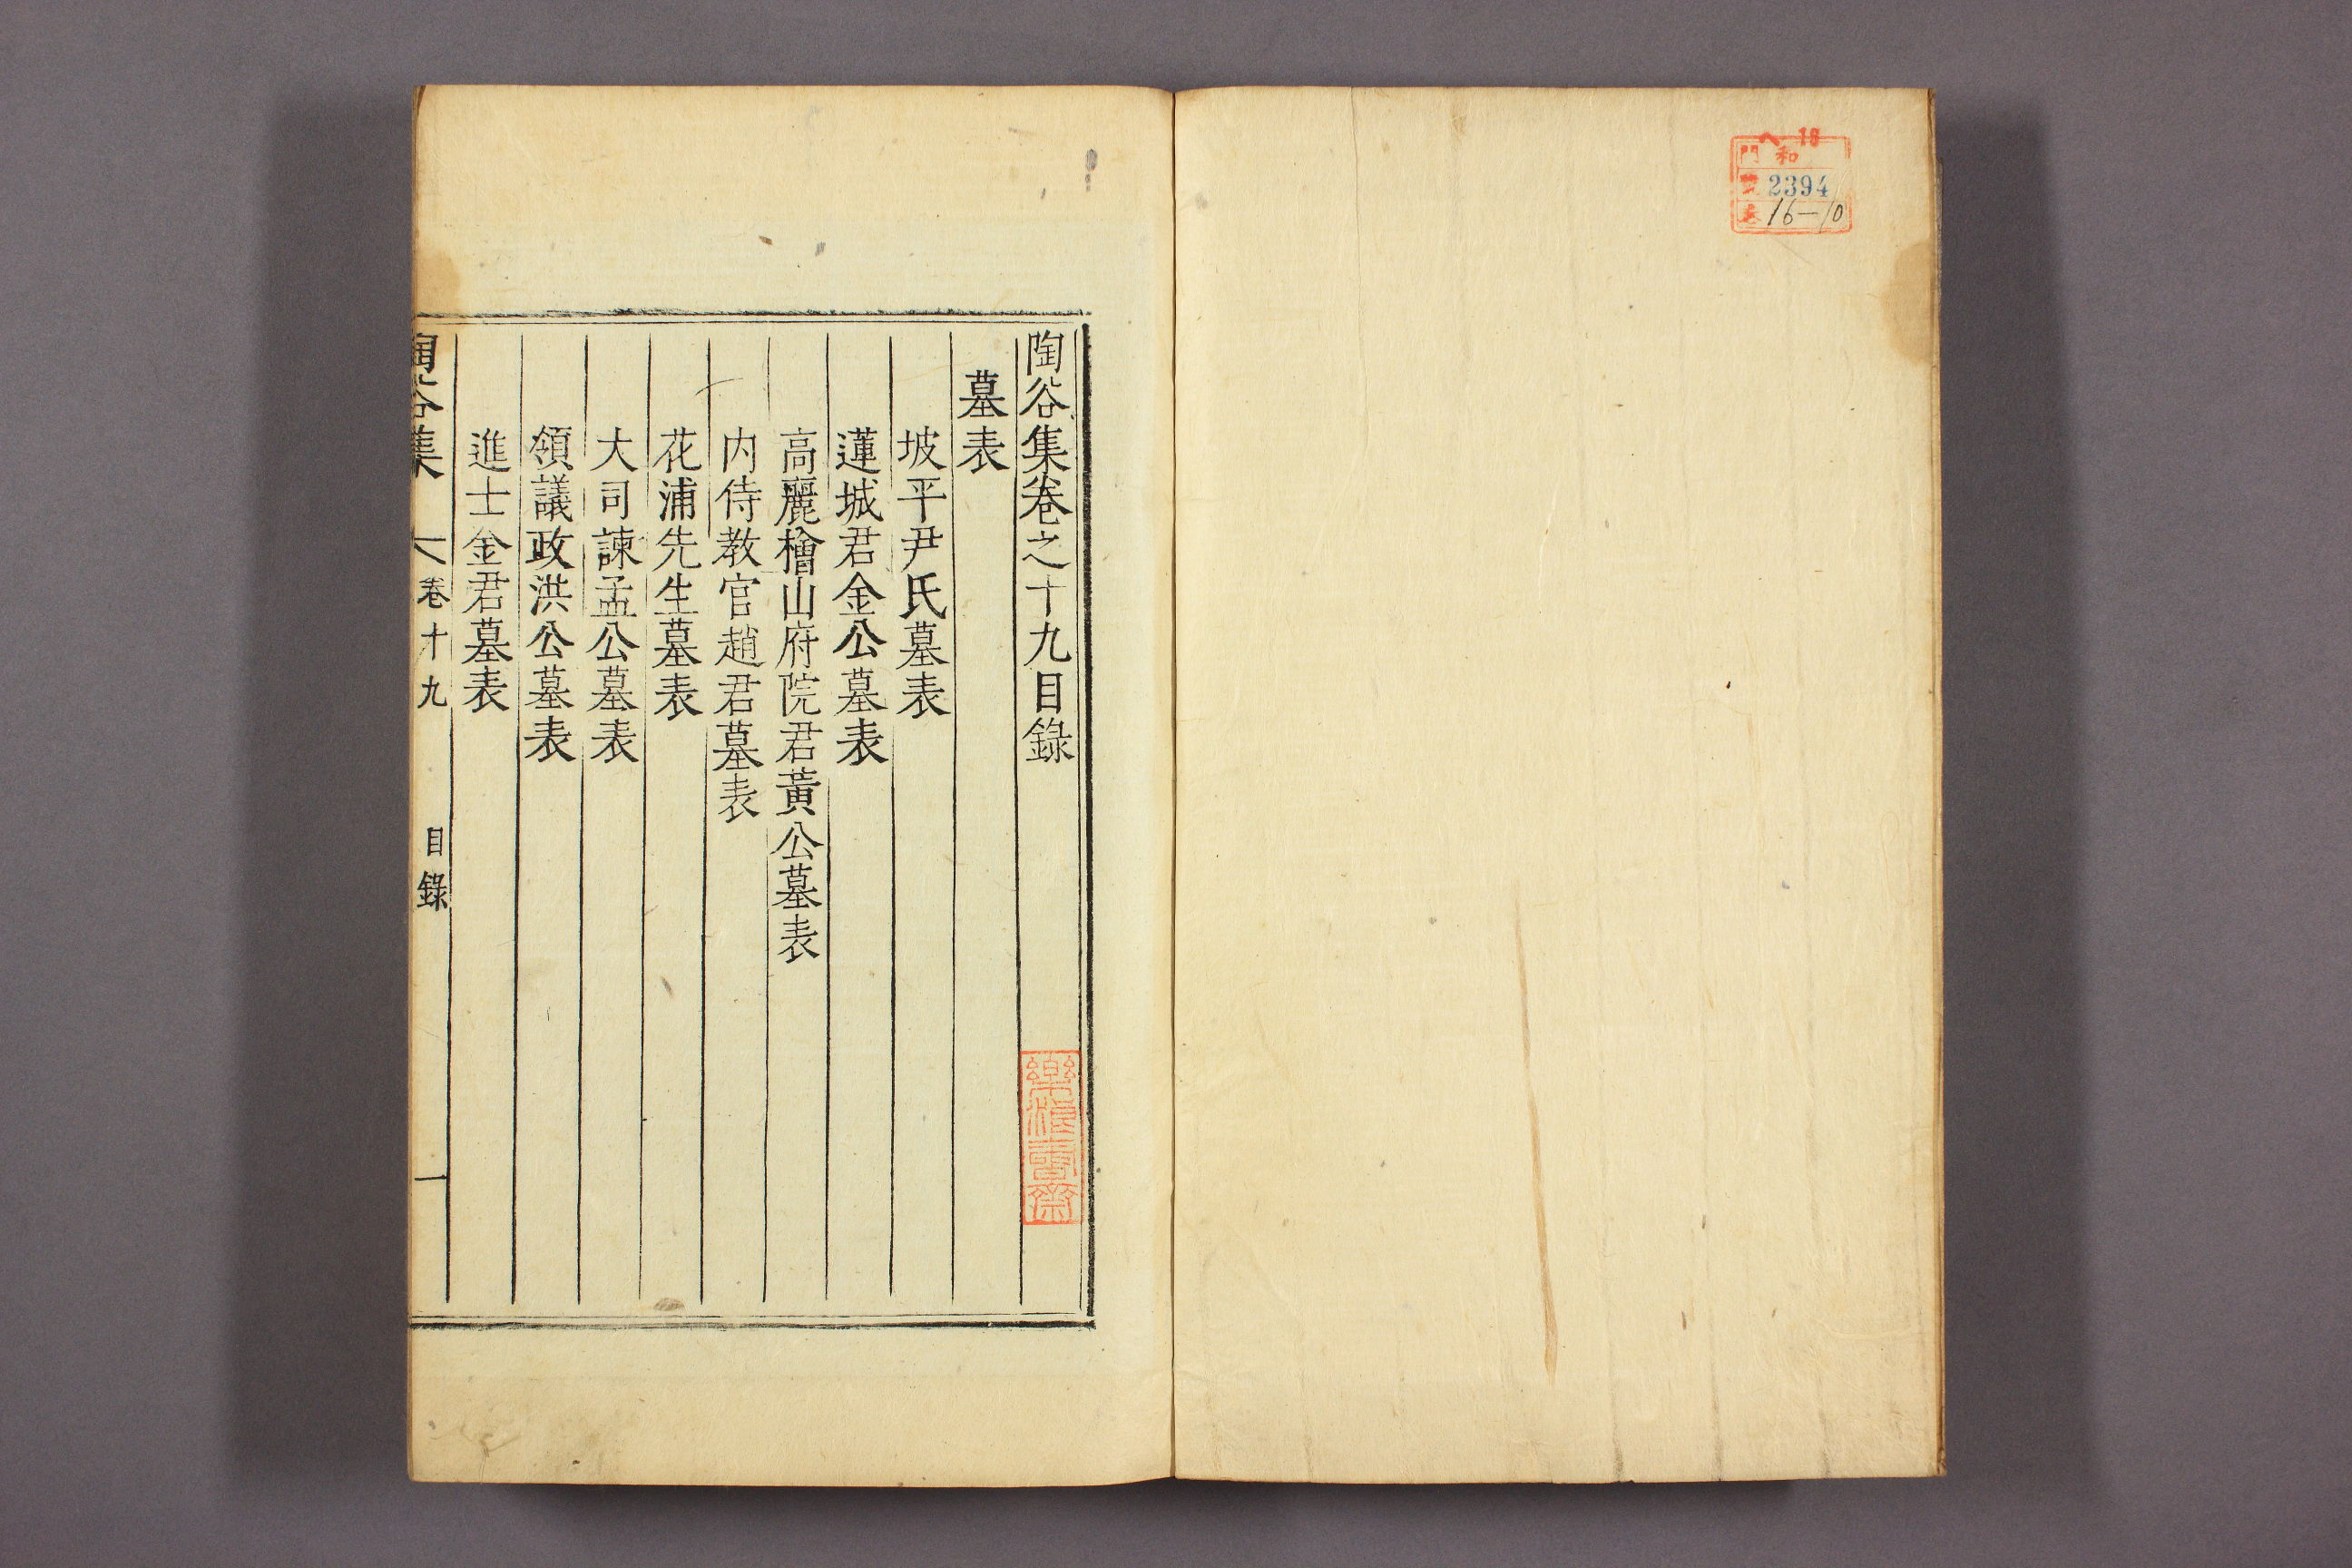 ヘ 18
門 和
2394
巻 16-10
陶谷集卷之十九目錄
墓表
坡平尹氏墓表
蓮城君金公墓表
高麗檜山府院君黃公墓表
内侍教官趙君墓表
花浦先生墓表
大司諫孟公墓表
領議政洪公墓表
進士金君墓表
陶谷集 卷十九 目錄 一
樂浪書齋